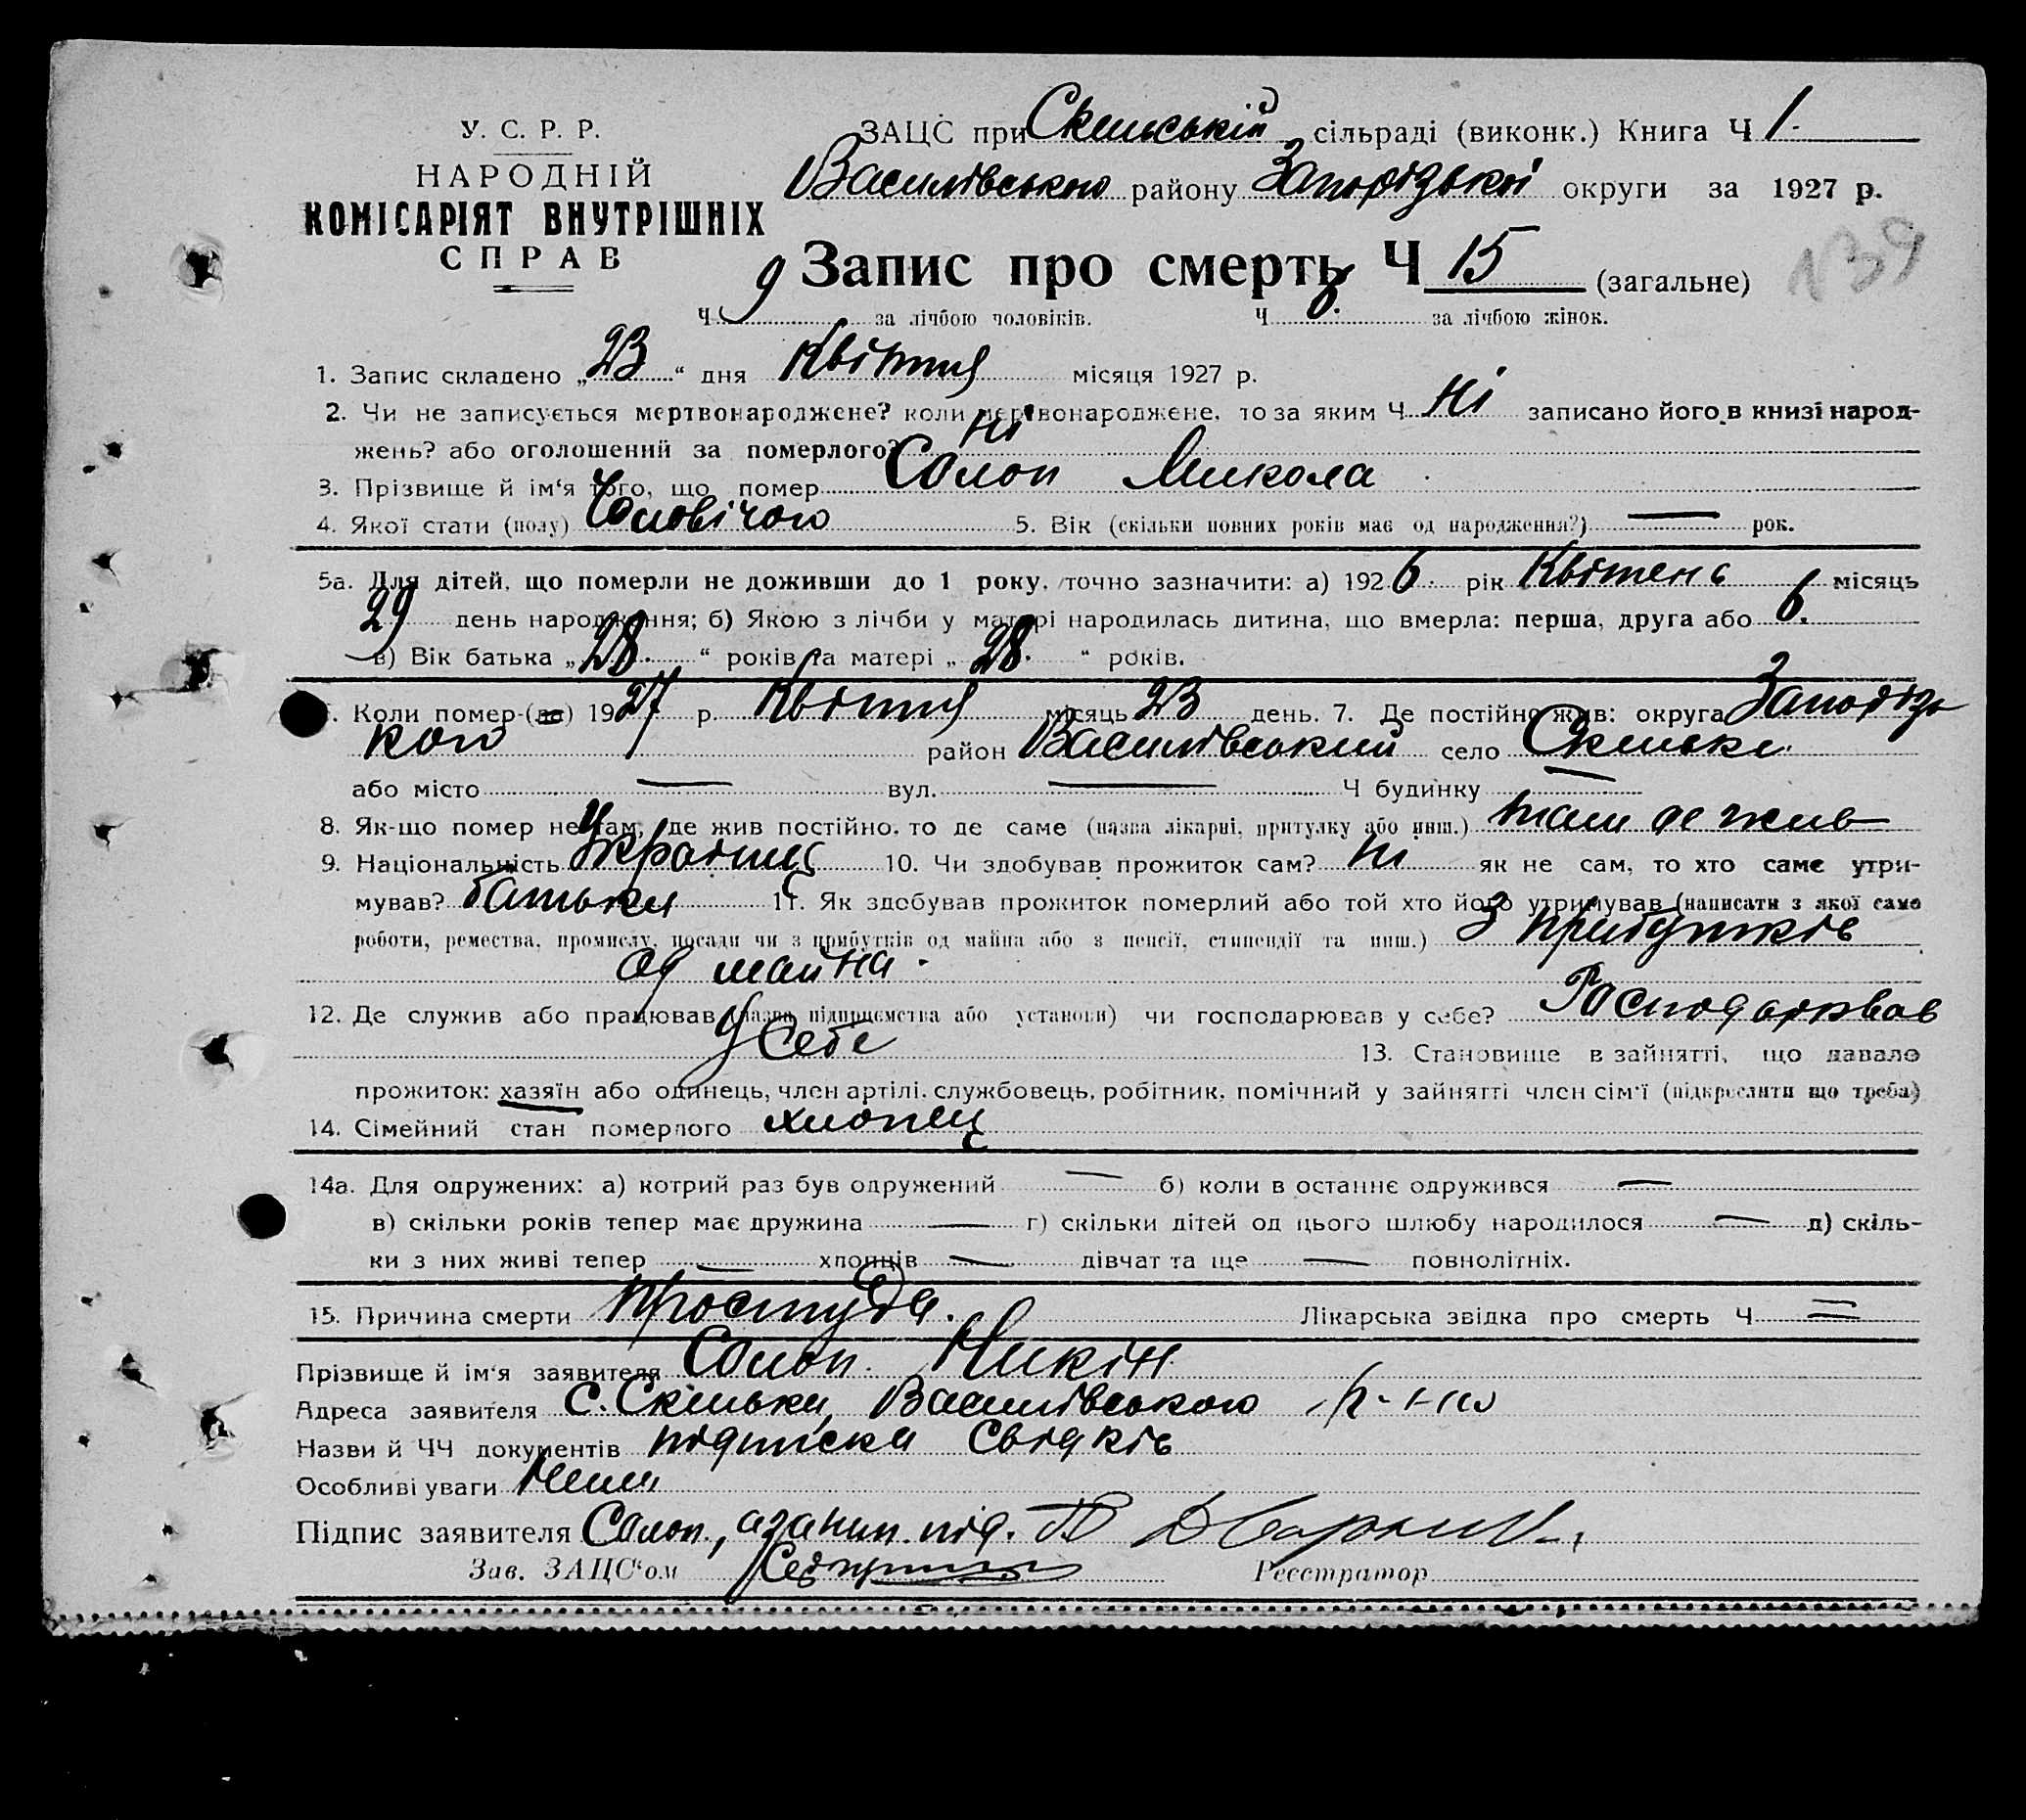 У. С. Р. Р.
НАРОДНІЙ
КОМІСАРІЯТ ВНУТРІШНІХ
СПРАВ
ЗАЦС при Скельській сільраді (виконк.) Книга Ч 1.
Василівського району Запорізької округи за 1927 р.
139
Запис про смерть Ч 15 (загальне)
Ч 9 за лічбою чоловіків. Ч за лічбою жінок.
1. Запис складено „23“ дня Квітня місяця 1927 р.
2. Чи не записується мертвонароджене? коли мертвонароджене, то за яким Ч Ні записано його в книзі народ-
жень? або оголошений за померлого? Ні
3. Прізвище й ім‘я того, що помер Солоп Микола
4. Якої стати (полу) Чоловічого 5. Вік (скільки повних років має од народження?) — рок.
5а. Для дітей, що померли не доживши до 1 року, точно зазначити: а) 1926. рік Квітень місяць
29 день народження; б) Якою з лічби у матері народилась дитина, що вмерла: перша, друга або 6.
в) Вік батька „28.“ років та матері „28.“ років.
6. Коли помер-(ла) 1927 р. Квітня місяць 23 день. 7. Де постійно жив: округа Запорізь
кого район Василівський село Скельки
або місто — вул. — Ч будинку —
8. Як-що помер не там, де жив постійно, то де саме (назва лікарні, притулку або инш.) там де жив
9. Національність Українец 10. Чи здобував прожиток сам? ні як не сам, то хто саме утри-
мував? батьки 11. Як здобував прожиток померлий або той хто його утримував (написати з якої саме
роботи, ремества, промислу, посади чи з прибутків од майна або з пенсії, стипендії та инш.) З прибутків
од майна.
12. Де служив або працював (назва підприємства або установи) чи господарював у себе? Господарював
у Себе 13. Становище в зайнятті, що давало
прожиток: хазяїн або одинець, член артілі, службовець, робітник, помічний у зайнятті член сім‘ї (підкреслити що треба)
14. Сімейний стан померлого хлопец
14а. Для одружених: а) котрий раз був одружений — б) коли в останнє одружився —
в) скільки років тепер має дружина — г) скільки дітей од цього шлюбу народилося — д) скіль-
ки з них живі тепер — хлопців — дівчат та ще — повнолітніх.
15. Причина смерти простуда. Лікарська звідка про смерть Ч =
Прізвище й ім‘я заявителя Солоп
Адреса заявителя с. Скельки, Василівського р-ну
Назви й ЧЧ документів підписка свідків
Особливі уваги
Підпис заявителя Солоп,
Зав. ЗАЦС‘ом Реєстратор